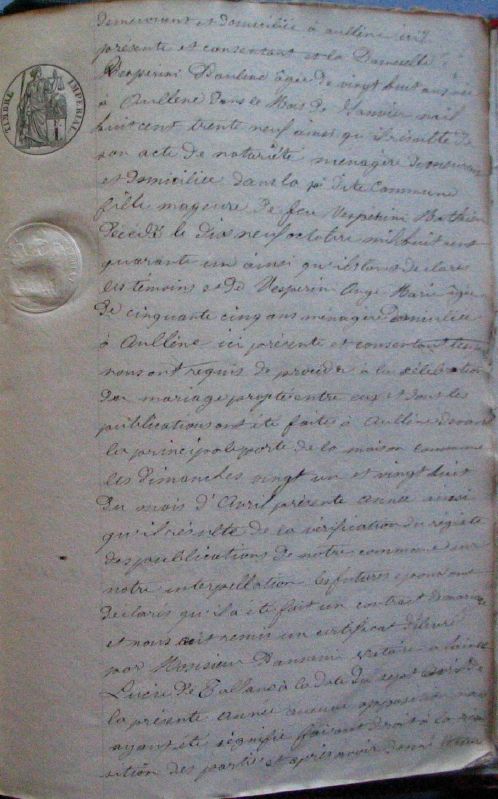 TIMBRE IMPERIAL
demeurant et domiciliée à aullène ici
présente et consentant et la Damoiselle
Vesperini Pauline agée de vingt huit ans née
à Aullène dans le Mois de Janvier mil
huit cent trente neuf ainsi qu'il résulte de
son acte de notoriété ménagère demeurant
et domiciliée dans la dite Commune
fille mageure de feu Vesperini
Décédé le dix neuf octobre mil huit cent
quarante un ainsi qu'ils ont déclaré
les témoins et de Vesperini Ange Marie agée
de cinquante cinq ans ménagère domiciliée
à Aullène ici présente et consentant
nous ont requis de proceder à la célébration
du mariage projeté entre eux et dont les
publications ont été faites à Aullène devant
la principale porte de la maison commune
les dimanches vingt un et vingt huit
du mois d'Avril présente année ainsi
qu'il résulte de la vérification du registre
des publications de notre commune sur
notre interpellation les futures epoux ont
déclaré qu'il a été fait un contrat de mariage
et nous ont remis un certificat délivré
par Monsieur notaire à Sainte
Lucie de Tallano à la date du sept
la présente année aucune opposition
ayant été signifié faisant droit à la
sition des parties et après avoir donné